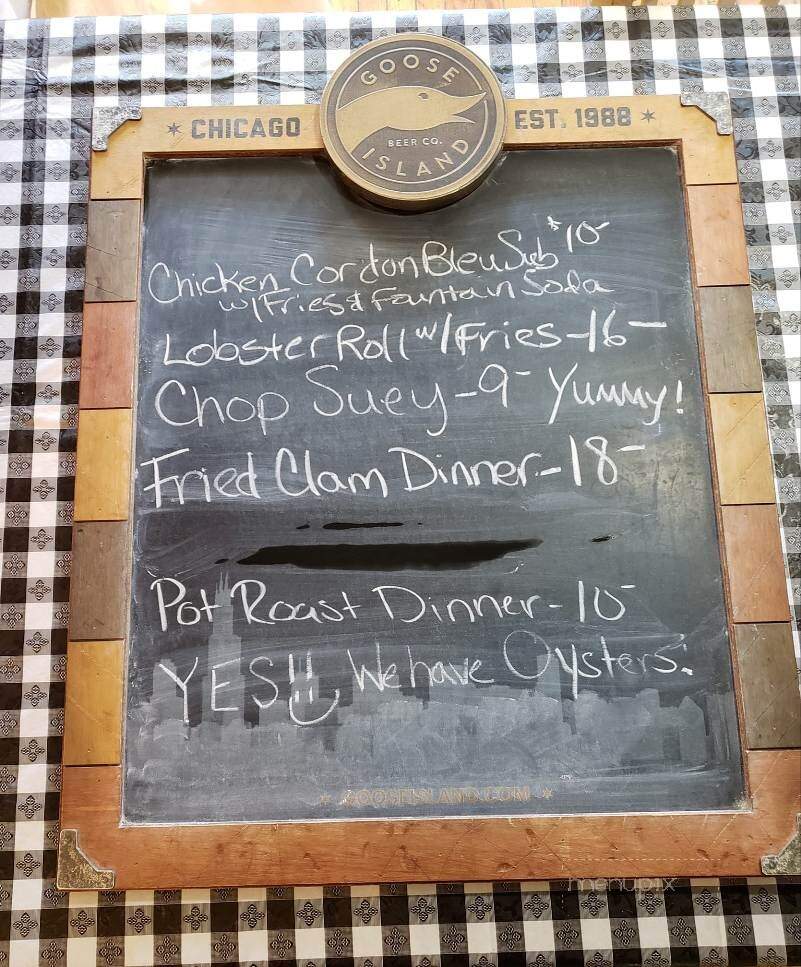 GOOSE
* CHICAGO
EST. 1988 *
BEER CO.
ISLAND
Chicken Cordon Bleu Sub $10-
w/Fries & Fountain Soda
Lobster Roll w/Fries -16-
Chop Suey -9- Yummy!
Fried Clam Dinner -18-
Pot Roast Dinner -10-
YES!! We have Oysters.
* GOOSEISLAND.COM *
menupix